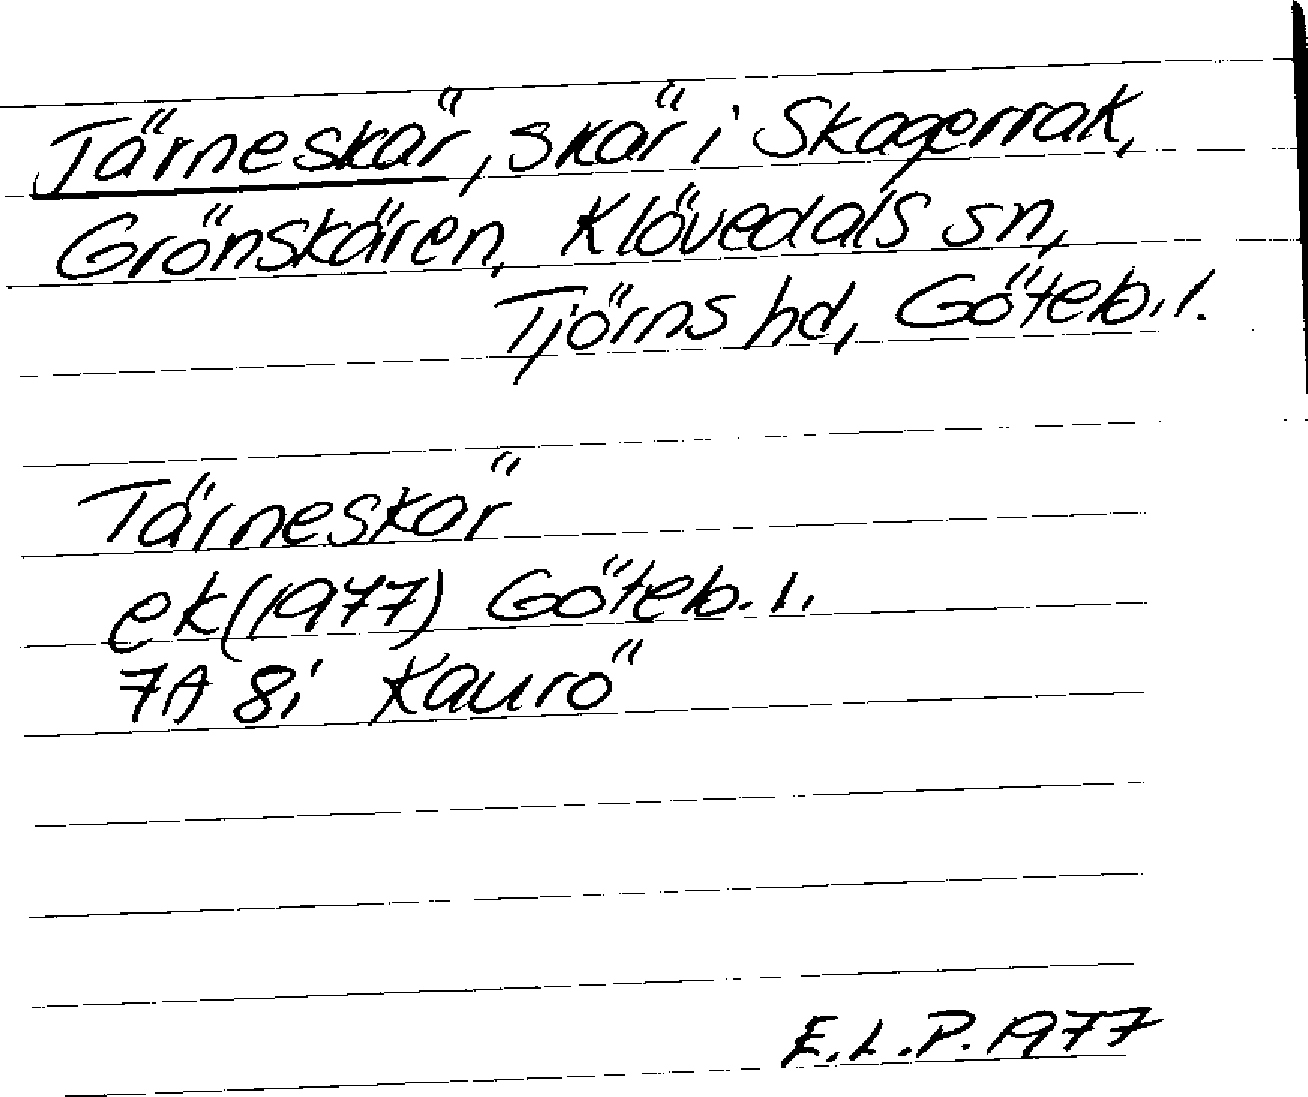 Tärneskär, skär i Skagerrak,
Grönskären, Klövedals sn,
Tjörns hd, Göteb.l.
Tärneskär
ek(1977) Göteb.l.
7A 8i Kaurö
E.L.P. 1977